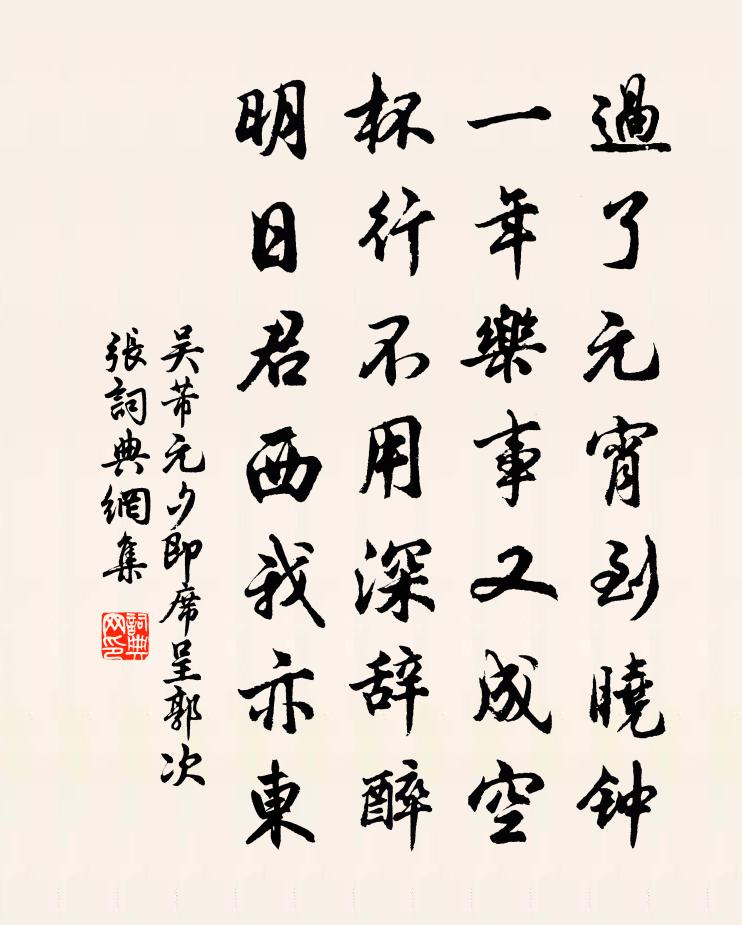 過了元宵到曉钟
一年樂事又成空
杯行不用深辞醉
明日君西我亦東
吴芾元夕即席呈郭次
張詞典網集
詞典网印